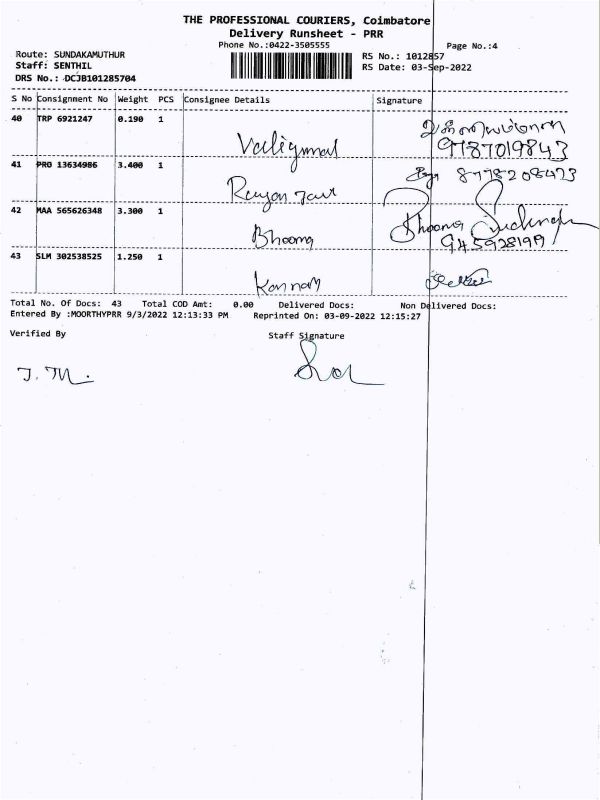 THE PROFESSIONAL COURIERS, Coimbatore
Delivery Runsheet - PRR
Phone No.:0422-3505555
Page No.:4
Route: SUNDAKAMUTHUR
RS No.: 1012857
Staff: SENTHIL
RS Date: 03-Sep-2022
DRS No.: DCJB101285704
S No Consignment No Weight PCS Consignee Details Signature
40 TRP 6921247 0.190 1
9787019843
41 PRO 13634986 3.400 1
8778208473
42 MAA 565626348 3.300 1
Bhooma
43 SLM 302538525 1.250 1
Kannan
Total No. Of Docs: 43 Total COD Amt: 0.00 Delivered Docs: Non Delivered Docs:
Entered By :MOORTHYPRR 9/3/2022 12:13:33 PM Reprinted On: 03-09-2022 12:15:27
Verified By Staff Signature